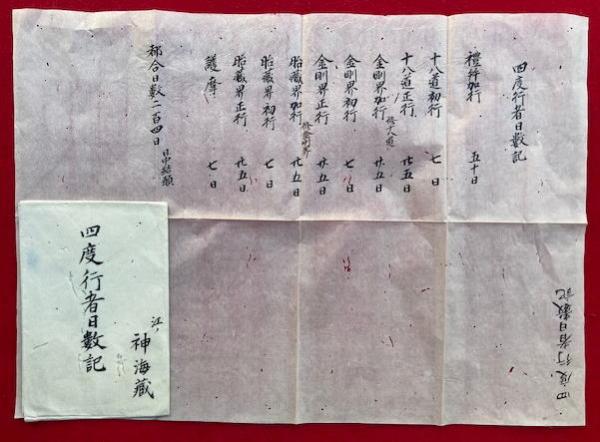 四度行者日數記
禮拜加行 五十日
十八道初行 七日
十八道正行 廿五日
金剛界加行 修十八道 廿五日
金剛界初行 七日
金剛界正行 廿五日
胎藏界加行 修金剛界 廿五日
胎藏界初行 七日
胎藏界正行 廿五日
護摩 七日
都合日数二百四日 日中結願
四度行者日數記
江ノ
神海藏
四度行者日數記